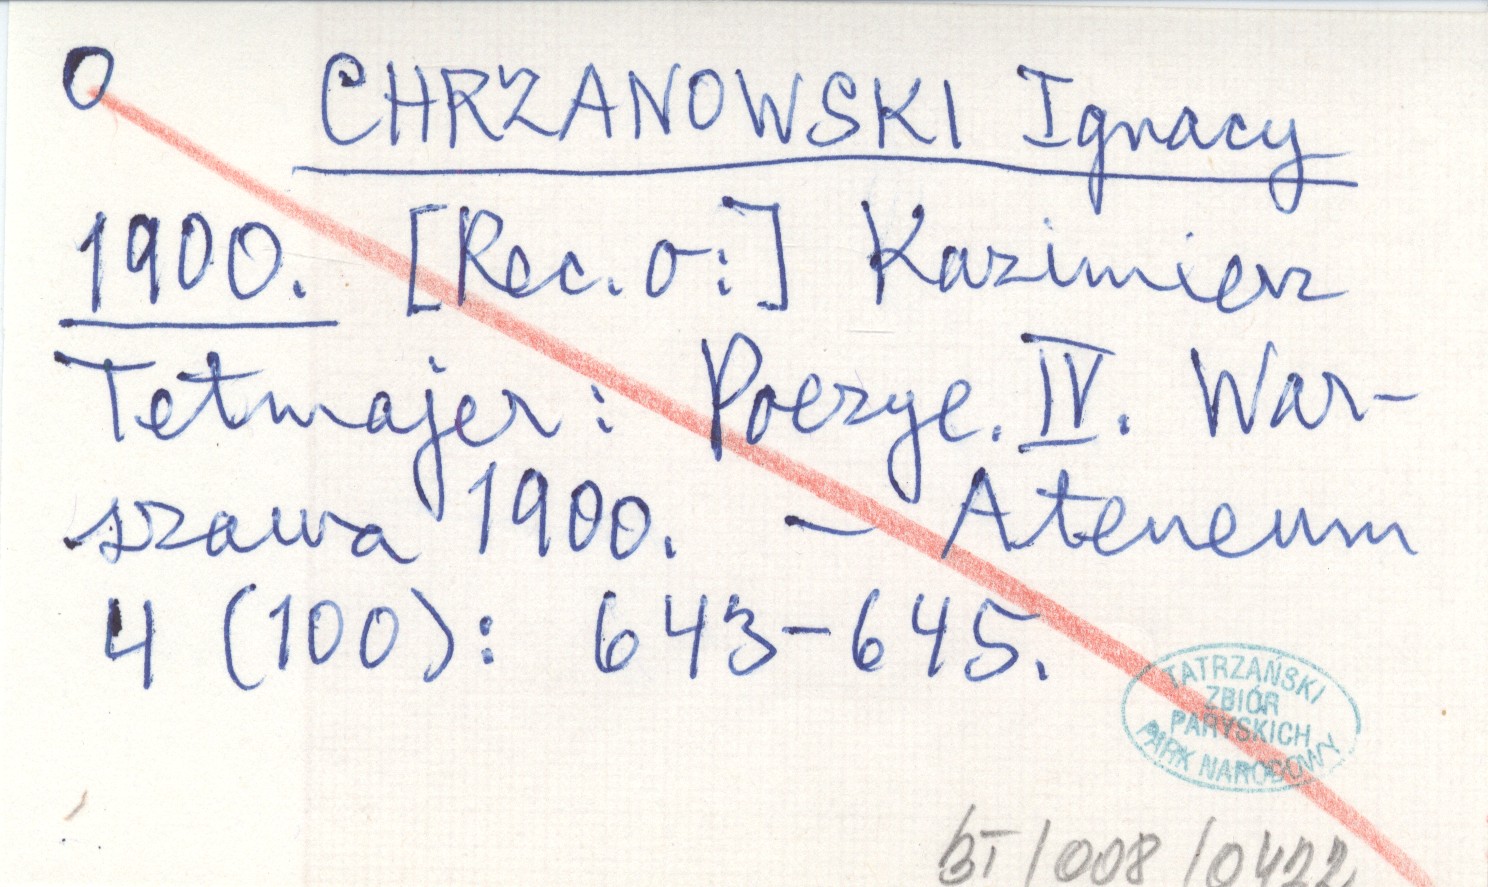 O CHRZANOWSKI Ignacy
1900. [Rec. o:] Kazimierz
Tetmajer: Poezye. IV. War-
szawa 1900. – Ateneum
4 (100): 643–645.
TATRZAŃSKI
ZBIÓR
PARYSKICH
PARK NARODOWY
BT/008/0422